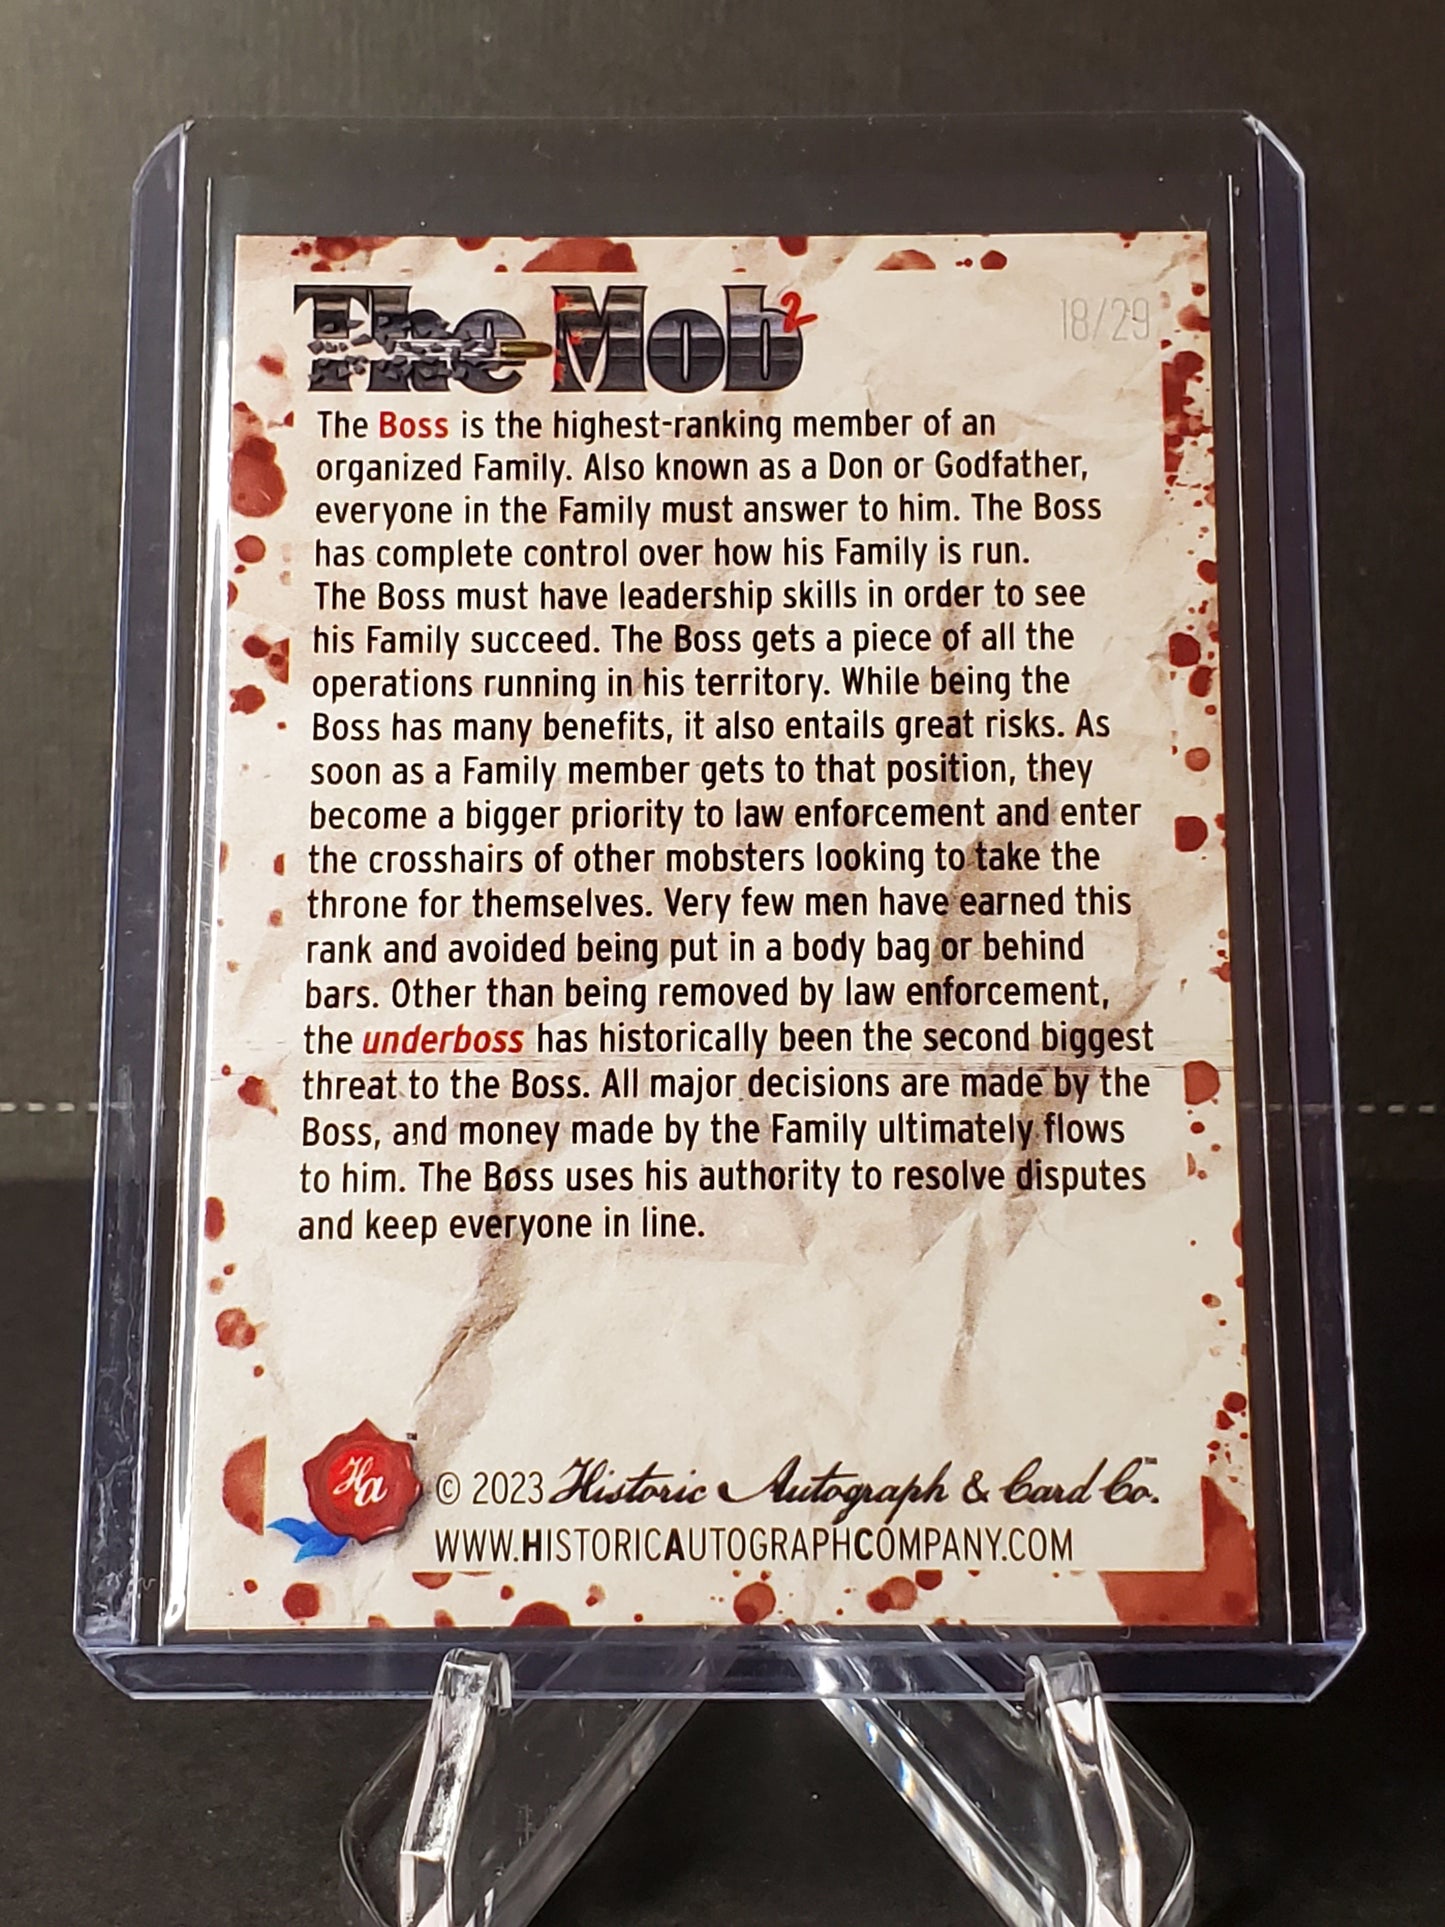 The Mob²
18/29
The Boss is the highest-ranking member of an
organized Family. Also known as a Don or Godfather,
everyone in the Family must answer to him. The Boss
has complete control over how his Family is run.
The Boss must have leadership skills in order to see
his Family succeed. The Boss gets a piece of all the
operations running in his territory. While being the
Boss has many benefits, it also entails great risks. As
soon as a Family member gets to that position, they
become a bigger priority to law enforcement and enter
the crosshairs of other mobsters looking to take the
throne for themselves. Very few men have earned this
rank and avoided being put in a body bag or behind
bars. Other than being removed by law enforcement,
the underboss has historically been the second biggest
threat to the Boss. All major decisions are made by the
Boss, and money made by the Family ultimately flows
to him. The Boss uses his authority to resolve disputes
and keep everyone in line.
Ha™
© 2023 Historic Autograph & Card Co.™
WWW.HISTORICAUTOGRAPHCOMPANY.COM